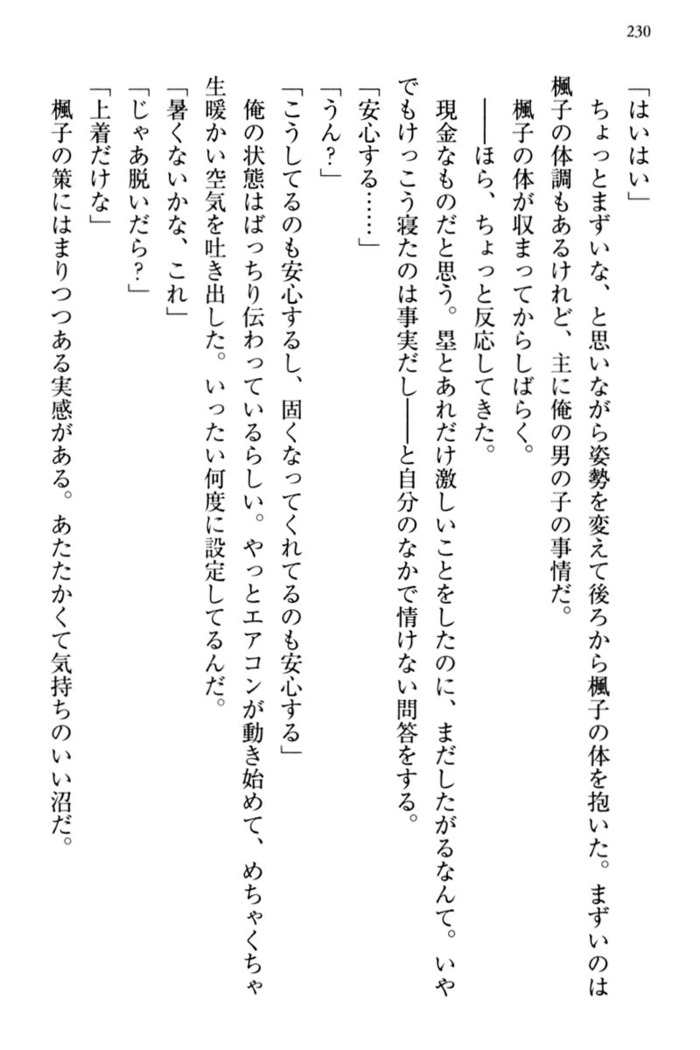 230
「はいはい」
　ちょっとまずいな、と思いながら姿勢を変えて後ろから楓子の体を抱いた。まずいのは
楓子の体調もあるけれど、主に俺の男の子の事情だ。
　楓子の体が収まってからしばらく。
　――ほら、ちょっと反応してきた。
　現金なものだと思う。塁とあれだけ激しいことをしたのに、まだしたがるなんて。いや
でもけっこう寝たのは事実だし――と自分のなかで情けない問答をする。
「安心する……」
「うん？」
「こうしてるのも安心するし、固くなってくれてるのも安心する」
　俺の状態はばっちり伝わっているらしい。やっとエアコンが動き始めて、めちゃくちゃ
生暖かい空気を吐き出した。いったい何度に設定してるんだ。
「暑くないかな、これ」
「じゃあ脱いだら？」
「上着だけな」
　楓子の策にはまりつつある実感がある。あたたかくて気持ちのいい沼だ。